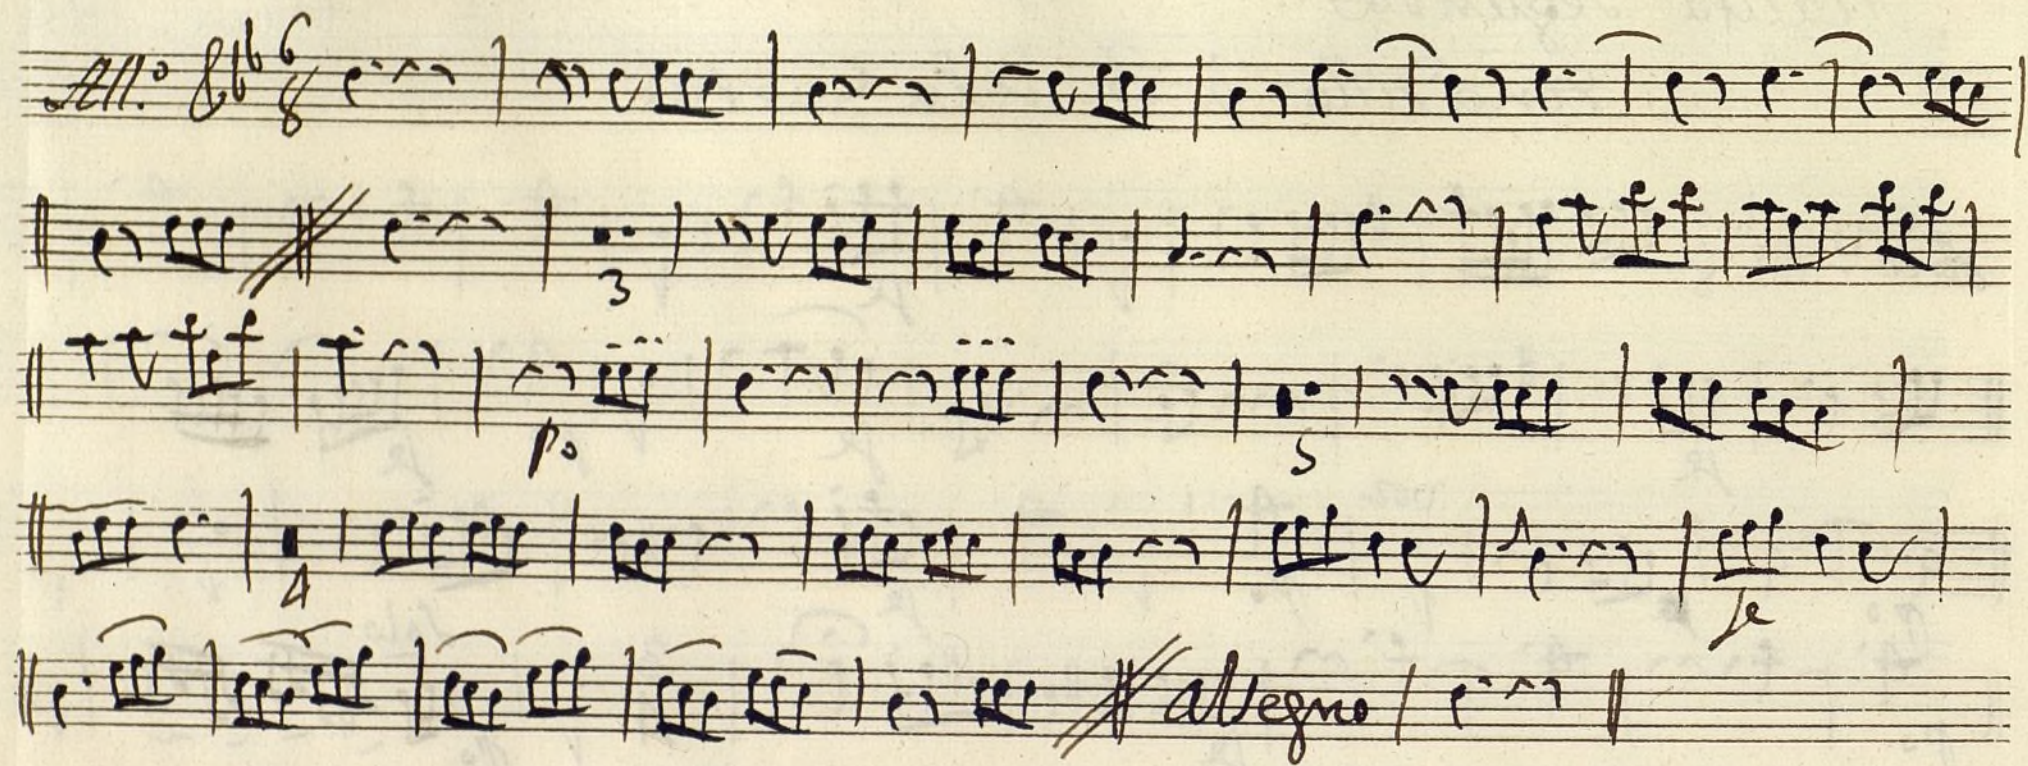 All.º 6 8
3
po 5
4 fe
al Segno